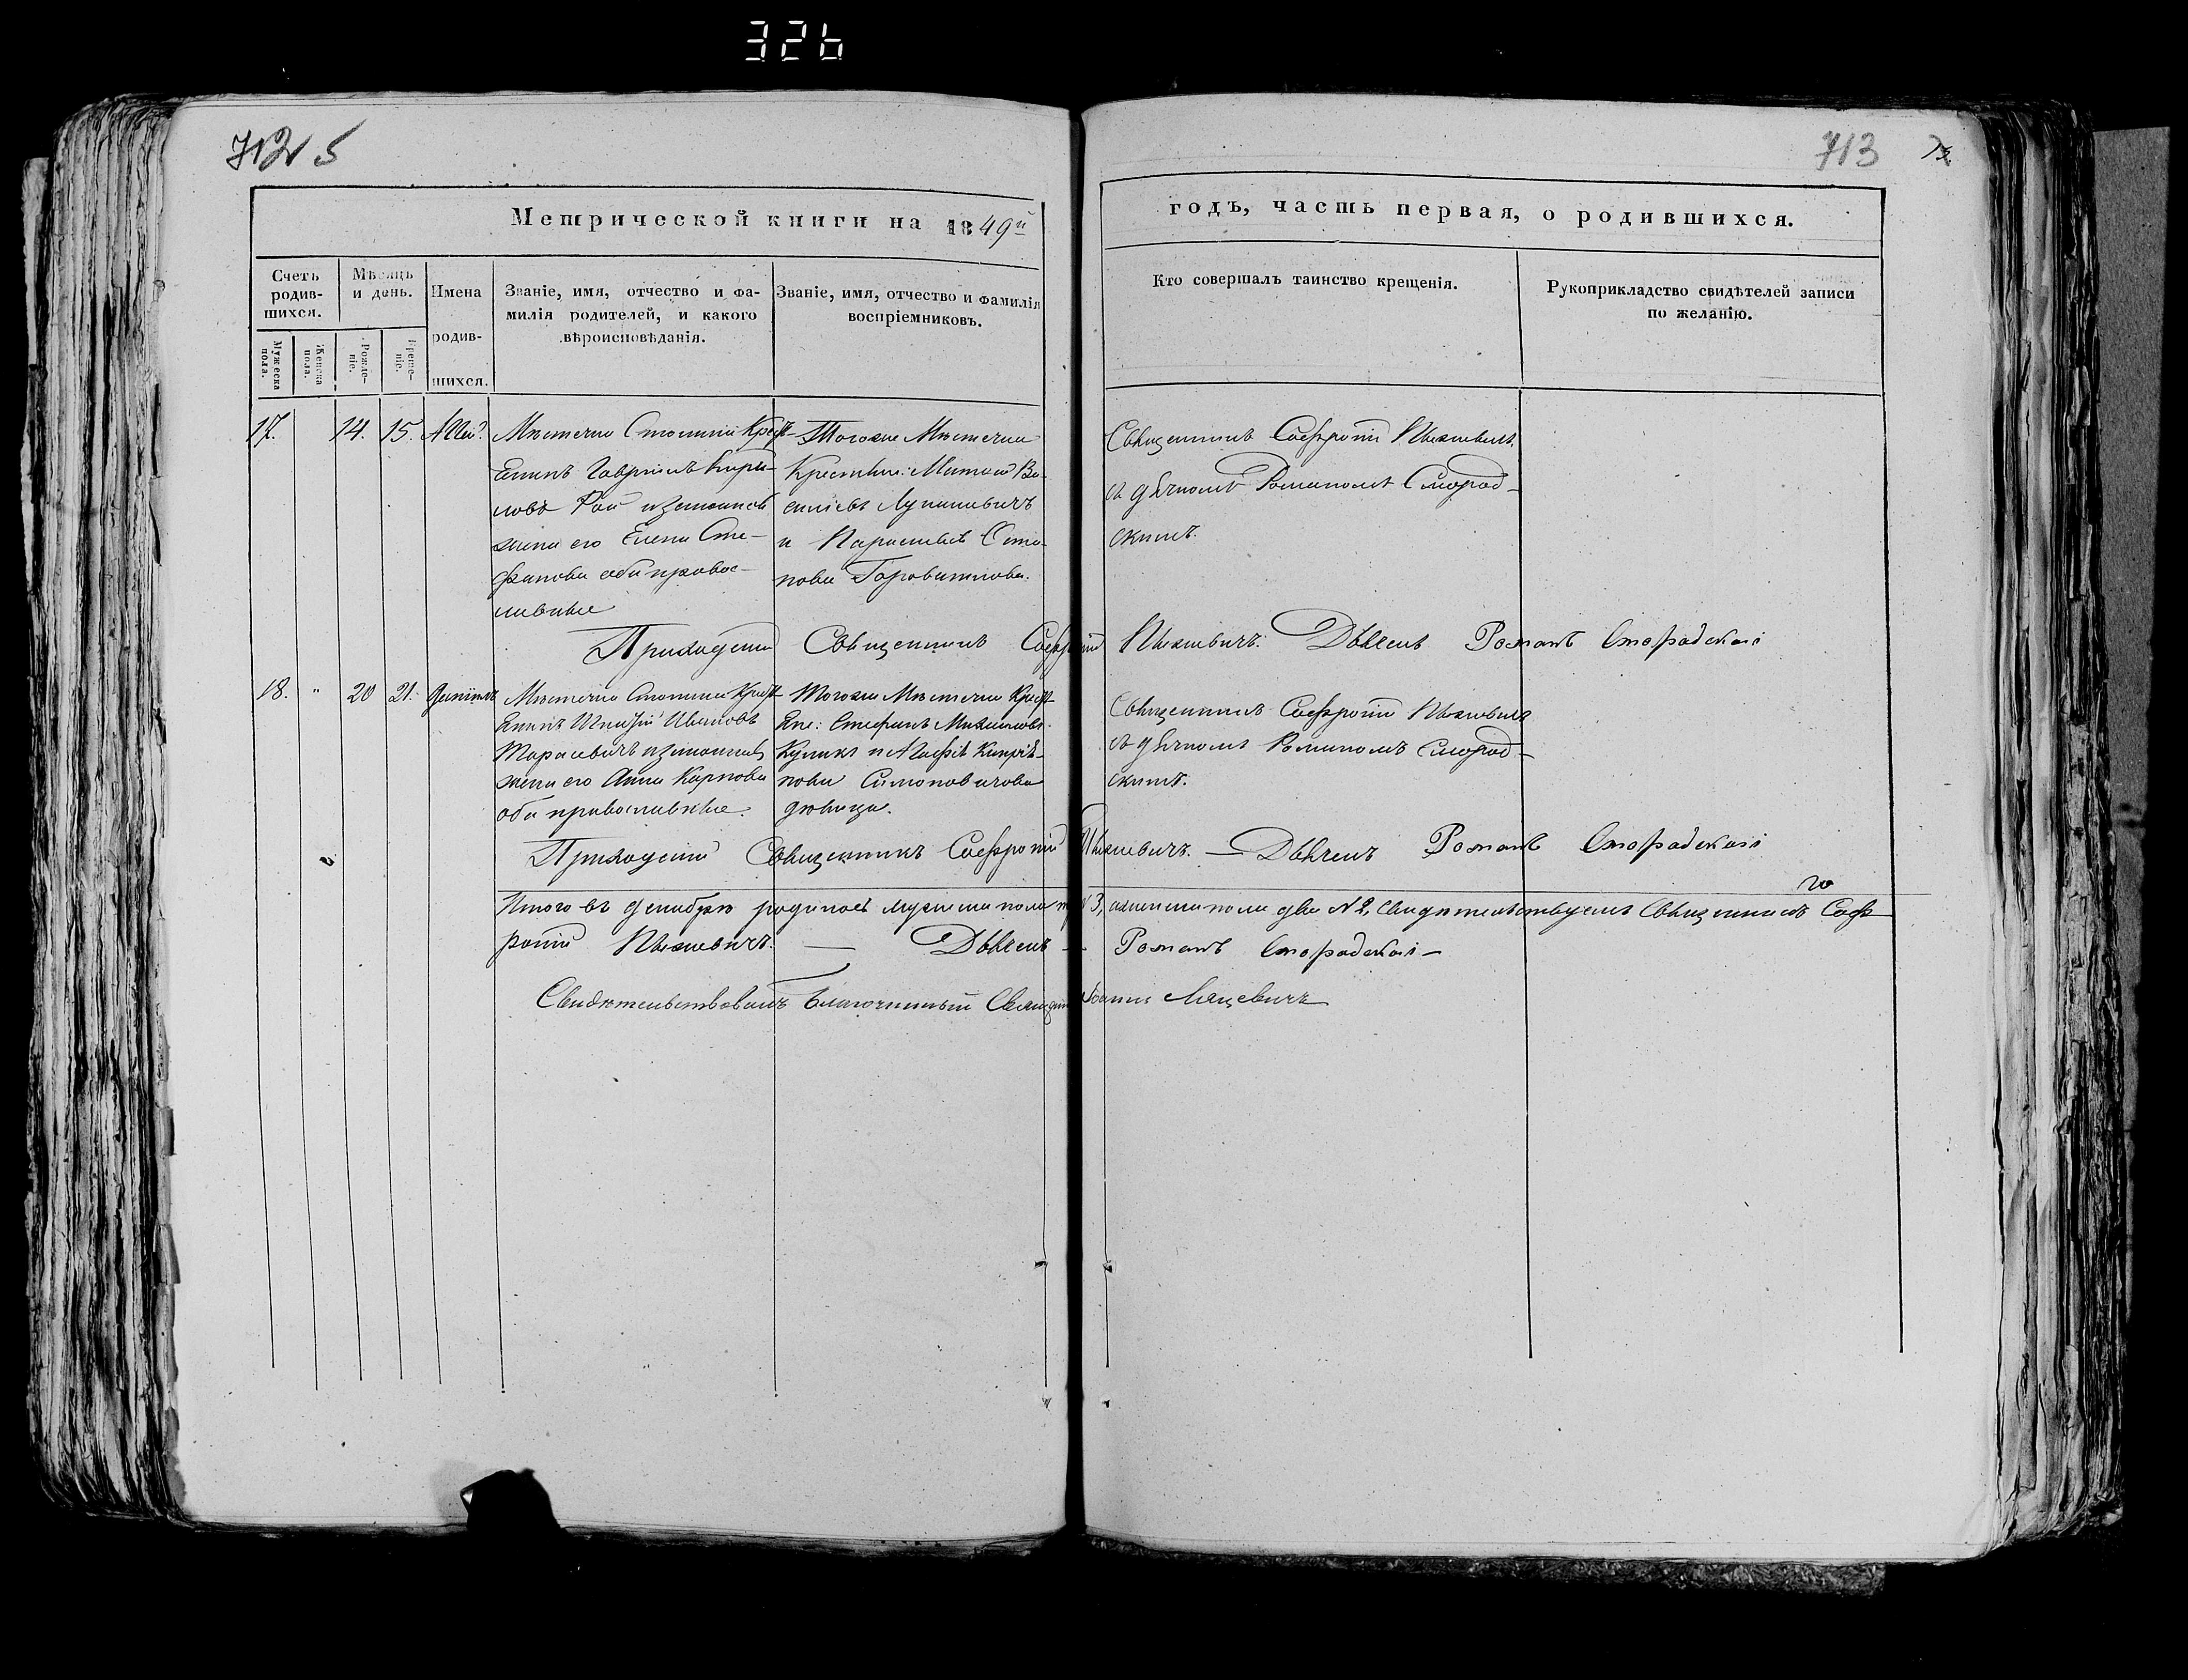 326
712 5
713
Метрической книги на 1849й
годъ, часть первая, о родившихся.
Счетъ родив-шихся.
Мужеска пола.
Женска пола.
Мѣсяцъ и день.
Рожде-ніе.
Креще-ніе.
Имена родив-шихся.
Званіе, имя, отчество и фа-
милія родителей, и какого
вѣроисповѣданія.
Званіе, имя, отчество и фамилія
воспріемниковъ.
Кто совершалъ таинство крещенія.
Рукоприкладство свидѣтелей записи
по желанію.
17. 14. 15.
Мѣстечка Столина Крест-
янинъ Гавріилъ Кири-
ловъ Рой изаконная
жена его Елена Сте-
фанова оба правос-
лавные
Тогоже Мѣстечка
Крестяне: Матвей Ва-
силіевъ Лукашевичъ
и Параскева Сте-
пова
Священникъ Софроній
съ дьячкомъ Романомъ Сморад-
скимъ.
Приходскій Священникъ Софроній Дьячекъ Романъ Сморадскій
18. " 20 21. Даніилъ
Мѣстечка Столина Крест-
янинъ Игнатій Ивановъ
Тарасевичъ изаконная
жена его Анна Карпова
оба православные.
Тогоже Мѣстечка Крест-
яне: Стефанъ Михаиловъ
Куликъ и Агафія Кипріа-
нова Симоновичова
дѣвица.
Священникъ Софроній
съ дьячкомъ Романомъ Сморад-
скимъ.
Приходскій Священникъ Софроній Дьячекъ Романъ Сморадскій
Итого въ декабрѣ родилось мужеска пола три №3, аженска пола два №2, Свидѣтельствуемъ Священникъ Соф-
роній — Дьячекъ — Романъ Сморадскій —
Свидѣтельствовалъ Благочинный Священникъ Іоаннъ Ляцевичъ